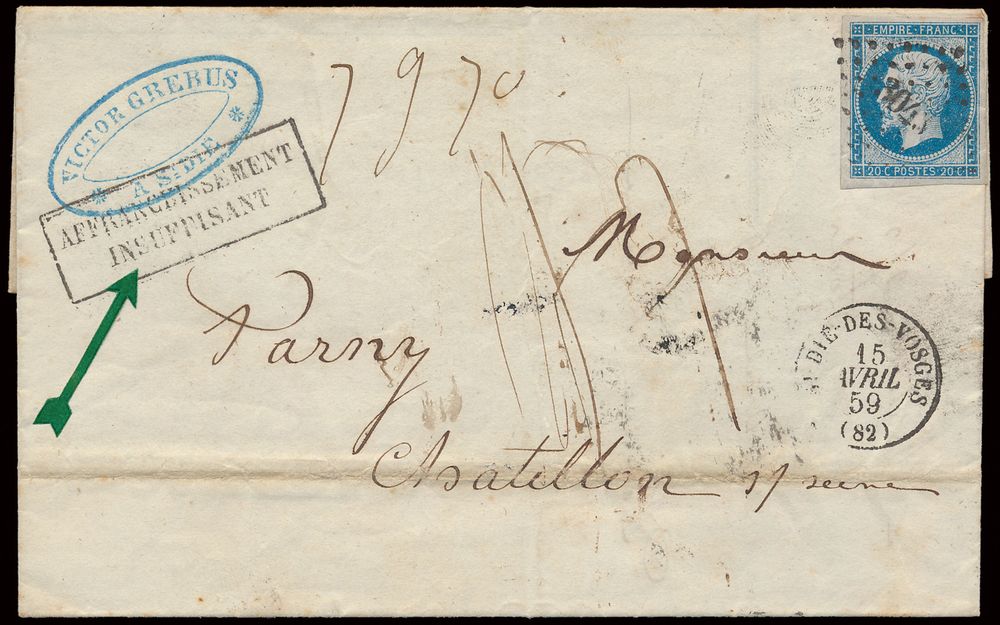 VICTOR GREBUS
* A St DIÉ *
AFFRANCHISSEMENT
INSUFFISANT
7970
EMPIRE FRANC
3043
20·C POSTES 20·C
Monsieur
Parny
Chatillon s/ seine
DIE-DES-VOSGES
15
AVRIL
59
(82)